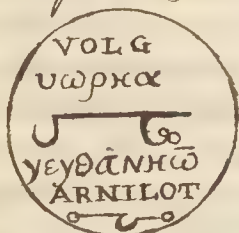 VOLG
υωρηα
γεγθὰνηω̄
ARNILOT